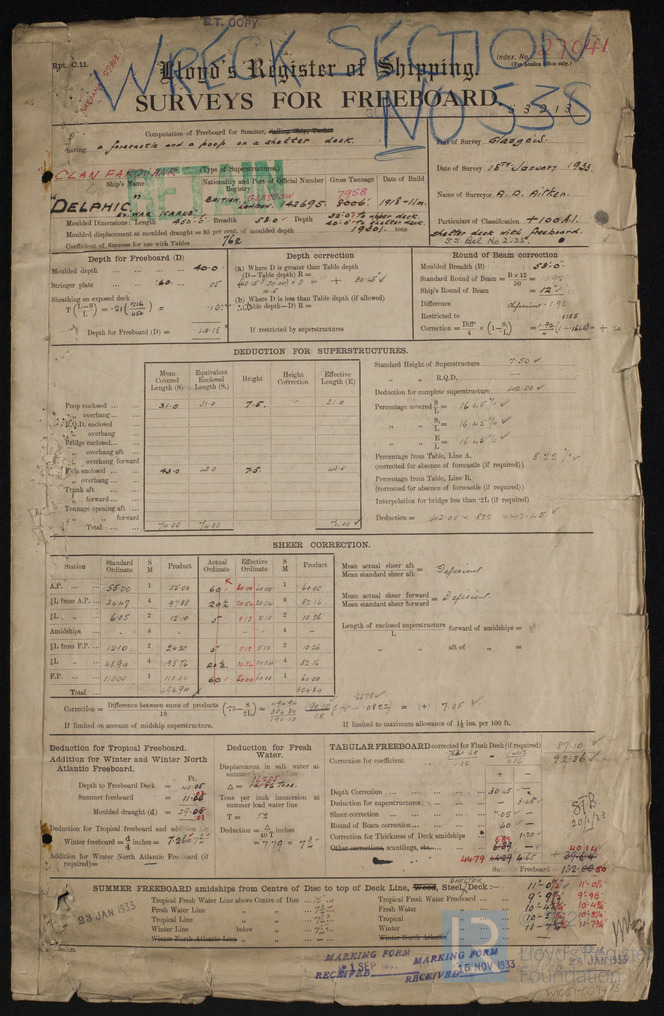 B.T. COPY
Rpt. C.11.
WRECK SECTION
NO 538
Index. No. 27041
(For London Office only.)
Lloyd's Register of Shipping.
SURVEYS FOR FREEBOARD.
53213
Computation of Freeboard for Steamer, Sailing Ship, Tanker
having a forecastle and a poop on a shelter deck.
(Type of Superstructures.)
Port of Survey Glasgow.
Date of Survey 18th January 1933.
Name of Surveyor A. P. Aitken.
Particulars of Classification +100A1.
shelter deck with freeboard.
CLAN FARQUHAR
Ship's Name
Nationality and Port of Registry
Official Number
Gross Tonnage
Date of Build
"DELPHIC"
ex. WAR ICARUS
BRITISH, GLASGOW
London.
142695.
7958
8006.
1918-11m.
Moulded Dimensions: Length 450.6 Breadth 58.0 Depth
32.07 to upper deck.
40.0 to shelter deck.
Moulded displacement at moulded draught = 85 per cent. of moulded depth 19301. tons
Coefficient of fineness for use with Tables .762
Depth for Freeboard (D)
Moulded depth ... 40.0
Stringer plate ... .60. .05
Sheathing on exposed deck
T (L-S/L) =
Depth for Freeboard (D) = 40.15
Depth correction
(a) Where D is greater than Table depth
(D—Table depth) R =
(40.15-30.00) × 3 = + 30.45
(b) Where D is less than Table depth (if allowed)
(Table depth—D) R =
If restricted by superstructures
Round of Beam correction
Moulded Breadth (B) 58.0
Standard Round of Beam = B×12/50 =
Ship's Round of Beam = 12"
Difference deficient 1.92
Restricted to
Correction = Diff/4 × (1-S/L) = 1.92/4 (1-.1645) = + .40
DEDUCTION FOR SUPERSTRUCTURES.
Mean Covered Length (S)
Equivalent Enclosed Length (S₁)
Height
Height Correction
Effective Length (E)
Poop enclosed ... 31.0 31.0 7.5. 31.0
„ overhang ...
R.Q.D. enclosed
„ overhang
Bridge enclosed...
„ overhang aft
„ overhang forward
F'cle enclosed ... 43.0 43.0 7.5. 43.0
„ overhang ...
Trunk aft ...
„ forward ...
Tonnage opening aft
„ „ forward
Total ... 74.00 74.00 74.00
Standard Height of Superstructure 7.50
„ „ R.Q.D.
Deduction for complete superstructure 42.00
Percentage covered S/L = 16.45%
„ „ S₁/L = 16.45%
„ „ E/L = 16.45%
Percentage from Table, Line A. 8.22%
(corrected for absence of forecastle (if required))
Percentage from Table, Line B.
(corrected for absence of forecastle (if required))
Interpolation for bridge less than ·2L (if required)
Deduction = 42.00 × .0822 = 3.45
SHEER CORRECTION.
Station
Standard Ordinate
S M
Product
Actual Ordinate
Effective Ordinate
S M
Product
A.P. ... 55.00 1 55.00 60. 60.00 60.00 1 60.00
⅙L from A.P. ... 24.47 4 97.88 20½ 20.54 20.54 4 82.16
⅓L „ 6.05 2 12.10 5 5.13 5.13 2 10.26
Amidships - 4 - - - - 4 -
⅓L from F.P. ... 12.10 2 24.20 5 5.13 5.13 2 10.26
⅙L „ 48.94 4 195.76 20½ 20.54 20.54 4 82.16
F.P. ... 110.00 1 110.00 60 60.00 60.00 1 60.00
Total ... 494.94 304.84
Mean actual sheer aft / Mean standard sheer aft = Deficient
Mean actual sheer forward / Mean standard sheer forward = Deficient
Length of enclosed superstructure / L forward of amidships =
„ „ aft of „ =
Correction = Difference between sums of products / 18 (·75-S/2L) = 494.94 304.84 190.10 190.10/18 (.75-.0822) = (+) 7.05
If limited on account of midship superstructure.
If limited to maximum allowance of 1½ ins. per 100 ft.
Deduction for Tropical Freeboard.
Addition for Winter and Winter North Atlantic Freeboard.
Ft.
Depth to Freeboard Deck = 40.05
Summer freeboard =
Moulded draught (d) =
Deduction for Tropical freeboard and addition for
Winter freeboard = d/4 inches =
Addition for Winter North Atlantic Freeboard (if required) =
Deduction for Fresh Water.
Displacement in salt water at summer load water line
Δ = tons.
Tons per inch immersion at summer load water line
T = 52
Deduction = Δ/40T inches
= 7.79 = 7¾
TABULAR FREEBOARD corrected for Flush Deck (if required) 87.10
Correction for coefficient 92.36
+ -
Depth Correction ... 30.45 -
Deduction for superstructures ... - 3.45
Sheer correction ... 7.05 -
Round of Beam correction ... .40 -
Correction for Thickness of Deck amidships - 1.20
Other corrections, scantlings, etc. ... 6.89
44.79 4.65 40.14
Summer Freeboard = 132.50
STB
20/1/33
SUMMER FREEBOARD amidships from Centre of Disc to top of Deck Line, Wood, Steel, SHELTER Deck :—
Tropical Fresh Water Line above Centre of Disc ...
Fresh Water Line „ „
Tropical Line „ „
Winter Line below „
Winter North Atlantic Line „ „
Tropical Fresh Water Freeboard
Fresh Water „
Tropical „
Winter „
Winter North Atlantic „
23 JAN 1933
MARKING FORM
RECEIVED
MARKING FORM
RECEIVED 15 NOV 1933
28 JAN 1933
Lloyd's Register
Foundation